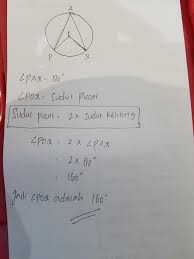 A
P
Q
∠PAQ = 80°
∠POQ = Sudut pusat
Sudut pusat = 2 x Sudut keliling
∠POQ = 2 x ∠PAQ
= 2 x 80°
= 160°
Jadi ∠POQ adalah 160°